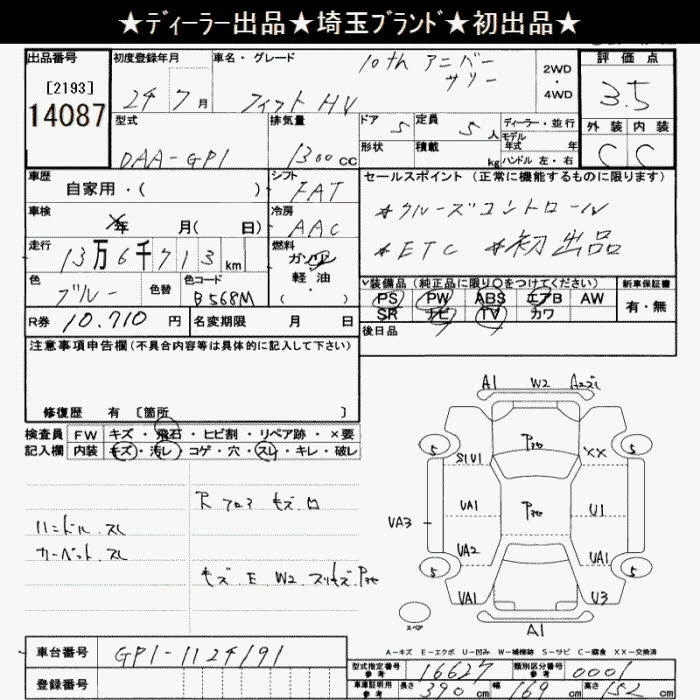 ★ディーラー出品★埼玉ブランド★初出品★
出品番号
[2193]
14087
初度登録年月
24年7月
車名・グレード
10th アニバーサリー
フィット HV
2WD
・
4WD
評価点
3.5
外装 内装
C C
型式
DAA-GP1
排気量
1300CC
ドア 5
定員 5人
ディーラー・並行
モデル年式 年
形状
積載 kg
ハンドル 左・右
車歴
自家用・( )
シフト
FAT
車検
年 月( 日)
冷房
AAC
走行
13万6千713km
燃料
ガソリン
軽・油
・( )
色
ブルー
色替
色コード
B568M
R券 10.710円
名変期限 月 日
セールスポイント (正常に機能するものに限ります)
*クルーズコントロール
*ETC *初出品
装備品(純正品に限り○をつけてください)
新車保証書
PS PW ABS エアB AW
有・無
SR ナビ TV カワ
後日品
注意事項申告欄(不具合内容等は具体的に記入して下さい)
修復歴 有 [箇所 ]
検査員 FW キズ・飛石・ヒビ割・リペア跡・×要
記入欄 内装 キズ・汚レ・コゲ・穴・スレ・キレ・破レ
ハンドル.スレ
カーペット.スレ
A1 W2
5 5
S1U1 XX
UA1 U1
UA3
UA2 UA1
5 5
UA1 U3
スペア
A1
A-キズ E-エクボ U-凹み W-補修跡 S-サビ C-腐食 XX-交換済
車台番号 GP1-1124191
登録番号
型式指定番号 参考 16627
類別区分番号 参考 0001
車庫証明用 参考 長さ 390cm 幅 169cm 高さ 152cm